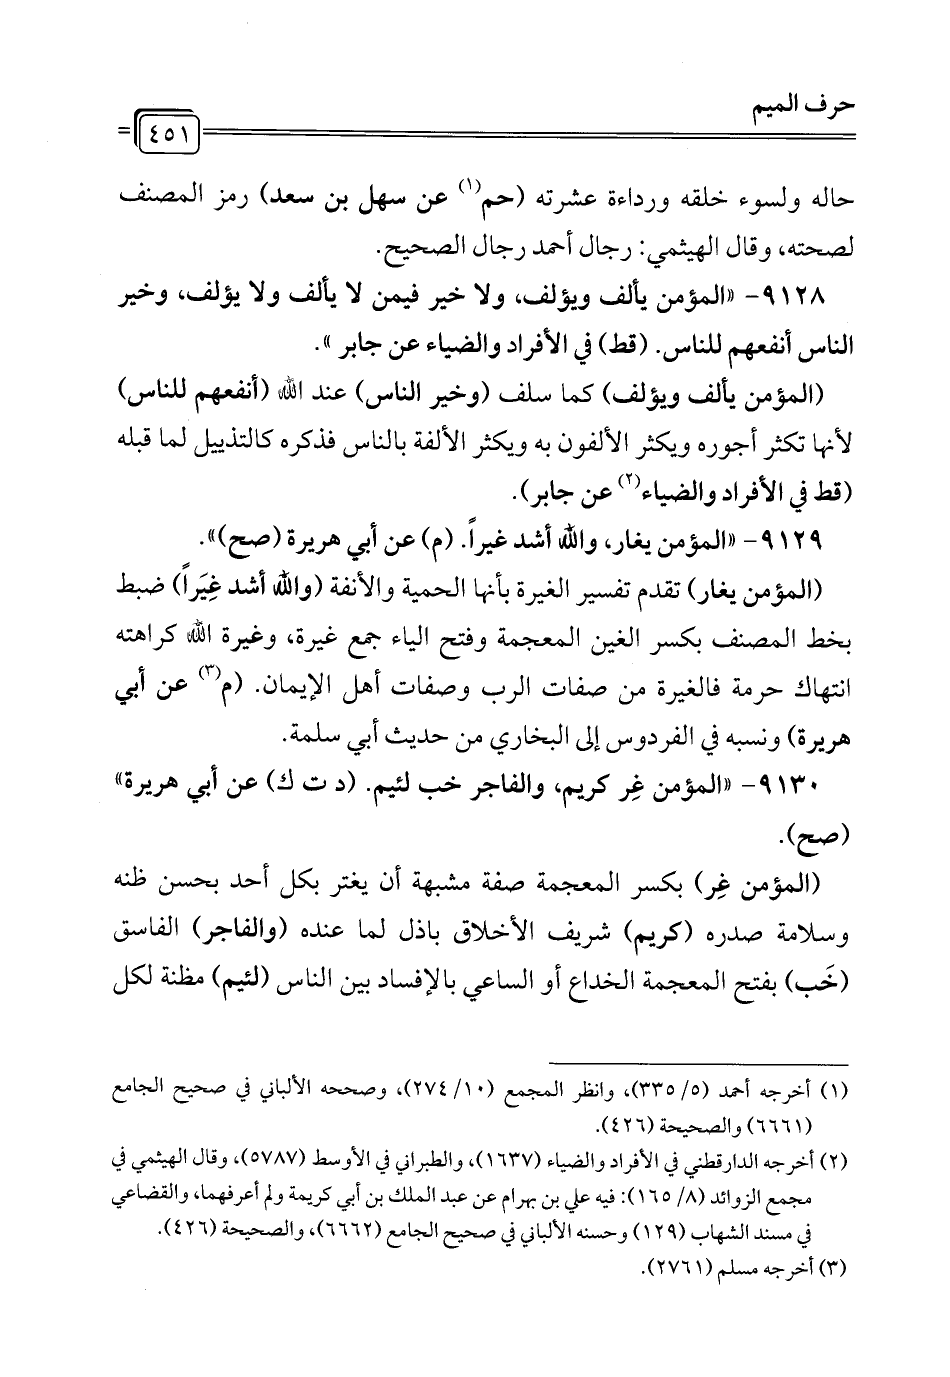 حرف الميم
٤٥١
حاله ولسوء خلقه ورداءة عشرته (حم(١) عن سهل بن سعد) رمز المصنف
لصحته، وقال الهيثمي: رجال أحمد رجال الصحيح.
٩١٢٨- «المؤمن يألف ويؤلف، ولا خير فيمن لا يألف ولا يؤلف، وخير
الناس أنفعهم للناس. (قط) في الأفراد والضياء عن جابر ».
(المؤمن يألف ويؤلف) كما سلف (وخير الناس) عند الله (أنفعهم للناس)
لأنها تكثر أجوره ويكثر الألفون به ويكثر الألفة بالناس فذكره كالتذييل لما قبله
(قط في الأفراد والضياء(٢) عن جابر).
٩١٢٩- «المؤمن يغار، والله أشد غيراً. (م) عن أبي هريرة (صح)».
(المؤمن يغار) تقدم تفسير الغيرة بأنها الحمية والأنفة (والله أشد غِيَراً) ضبط
بخط المصنف بكسر الغين المعجمة وفتح الياء جمع غيرة، وغيرة الله كراهته
انتهاك حرمة فالغيرة من صفات الرب وصفات أهل الإيمان. (م(٣) عن أبي
هريرة) ونسبه في الفردوس إلى البخاري من حديث أبي سلمة.
٩١٣٠- «المؤمن غِر كريم، والفاجر خب لئيم. (د ت ك) عن أبي هريرة»
(صح).
(المؤمن غِر) بكسر المعجمة صفة مشبهة أن يغتر بكل أحد بحسن ظنه
وسلامة صدره (كريم) شريف الأخلاق باذل لما عنده (والفاجر) الفاسق
(خَب) بفتح المعجمة الخداع أو الساعي بالإفساد بين الناس (لئيم) مظنة لكل
(١) أخرجه أحمد (٥/ ٣٣٥)، وانظر المجمع (١٠/ ٢٧٤)، وصححه الألباني في صحيح الجامع
(٦٦٦١) والصحيحة (٤٢٦).
(٢) أخرجه الدارقطني في الأفراد والضياء (١٦٣٧)، والطبراني في الأوسط (٥٧٨٧)، وقال الهيثمي في
مجمع الزوائد (٨/ ١٦٥): فيه علي بن بهرام عن عبد الملك بن أبي كريمة ولم أعرفهما، والقضاعي
في مسند الشهاب (١٢٩) وحسنه الألباني في صحيح الجامع (٦٦٦٢)، والصحيحة (٤٢٦).
(٣) أخرجه مسلم (٢٧٦١).